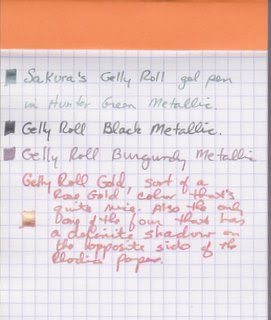 Sakura's Gelly Roll gel pen
in Hunter Green Metallic.
Gelly Roll Black Metallic.
Gelly Roll Burgundy Metallic
Gelly Roll Gold, sort of a
Rose Gold, color that's
quite nice. Also the only
one of the four that has
a definite shadow on
the opposite side of the
Rhodia paper.